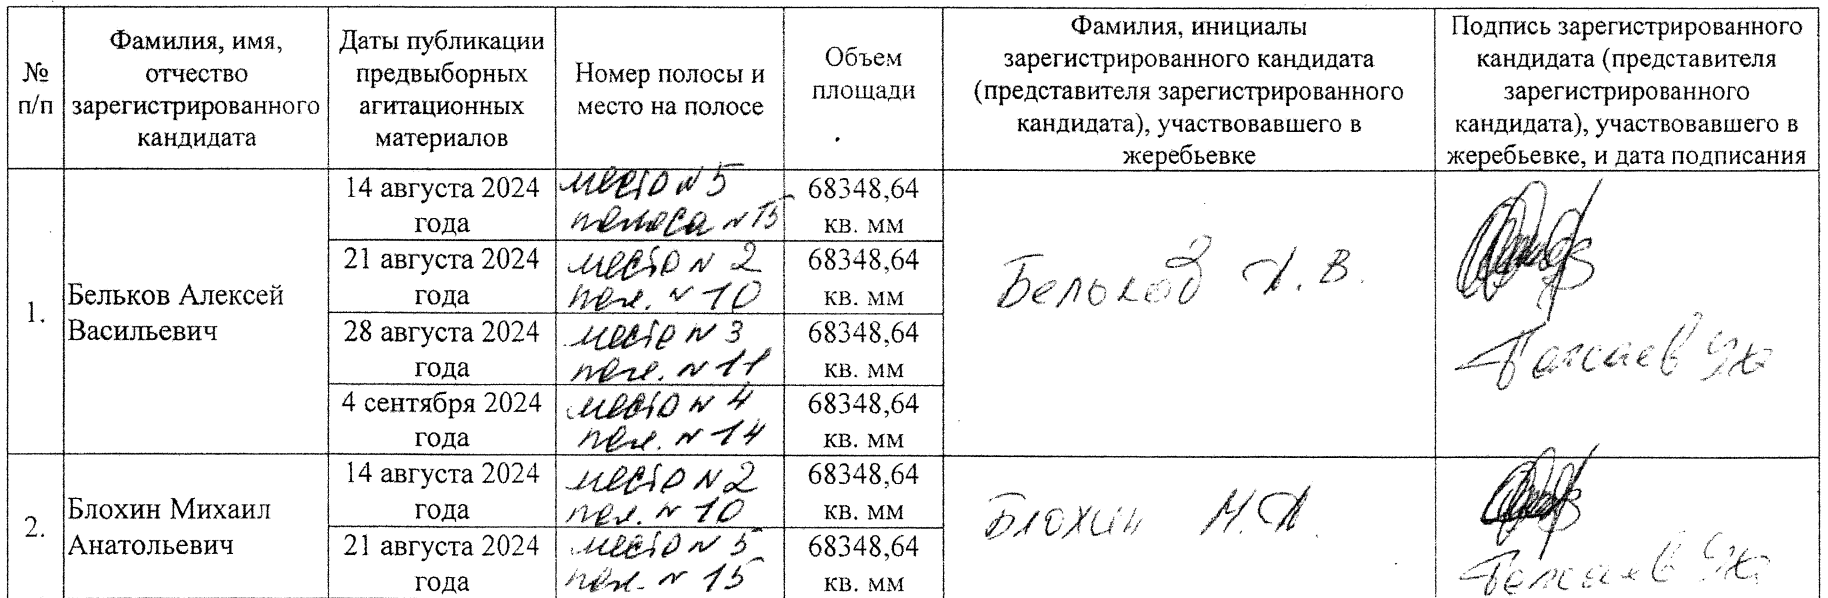 № п/п
Фамилия, имя, отчество зарегистрированного кандидата
Даты публикации предвыборных агитационных материалов
Номер полосы и место на полосе
Объем площади
Фамилия, инициалы зарегистрированного кандидата (представителя зарегистрированного кандидата), участвовавшего в жеребьевке
Подпись зарегистрированного кандидата (представителя зарегистрированного кандидата), участвовавшего в жеребьевке, и дата подписания
1.
Бельков Алексей
Васильевич
14 августа 2024
года
место № 5
полоса № 15
68348,64
кв. мм
21 августа 2024
года
место № 2
пол. № 10
68348,64
кв. мм
28 августа 2024
года
место № 3
пол. № 11
68348,64
кв. мм
4 сентября 2024
года
место № 4
пол. № 14
68348,64
кв. мм
Бельков А. В.
2.
Блохин Михаил
Анатольевич
14 августа 2024
года
место № 2
пол. № 10
68348,64
кв. мм
21 августа 2024
года
место № 5
пол. № 15
68348,64
кв. мм
Блохин М.А